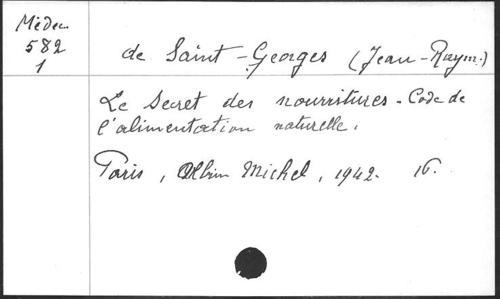 Méden
582
1
de Saint-Georges (Jean-Raym.)
Le Secret des nourritures - Code de
l'alimentation naturelle.
Paris, Albin Michel, 1942. 16.